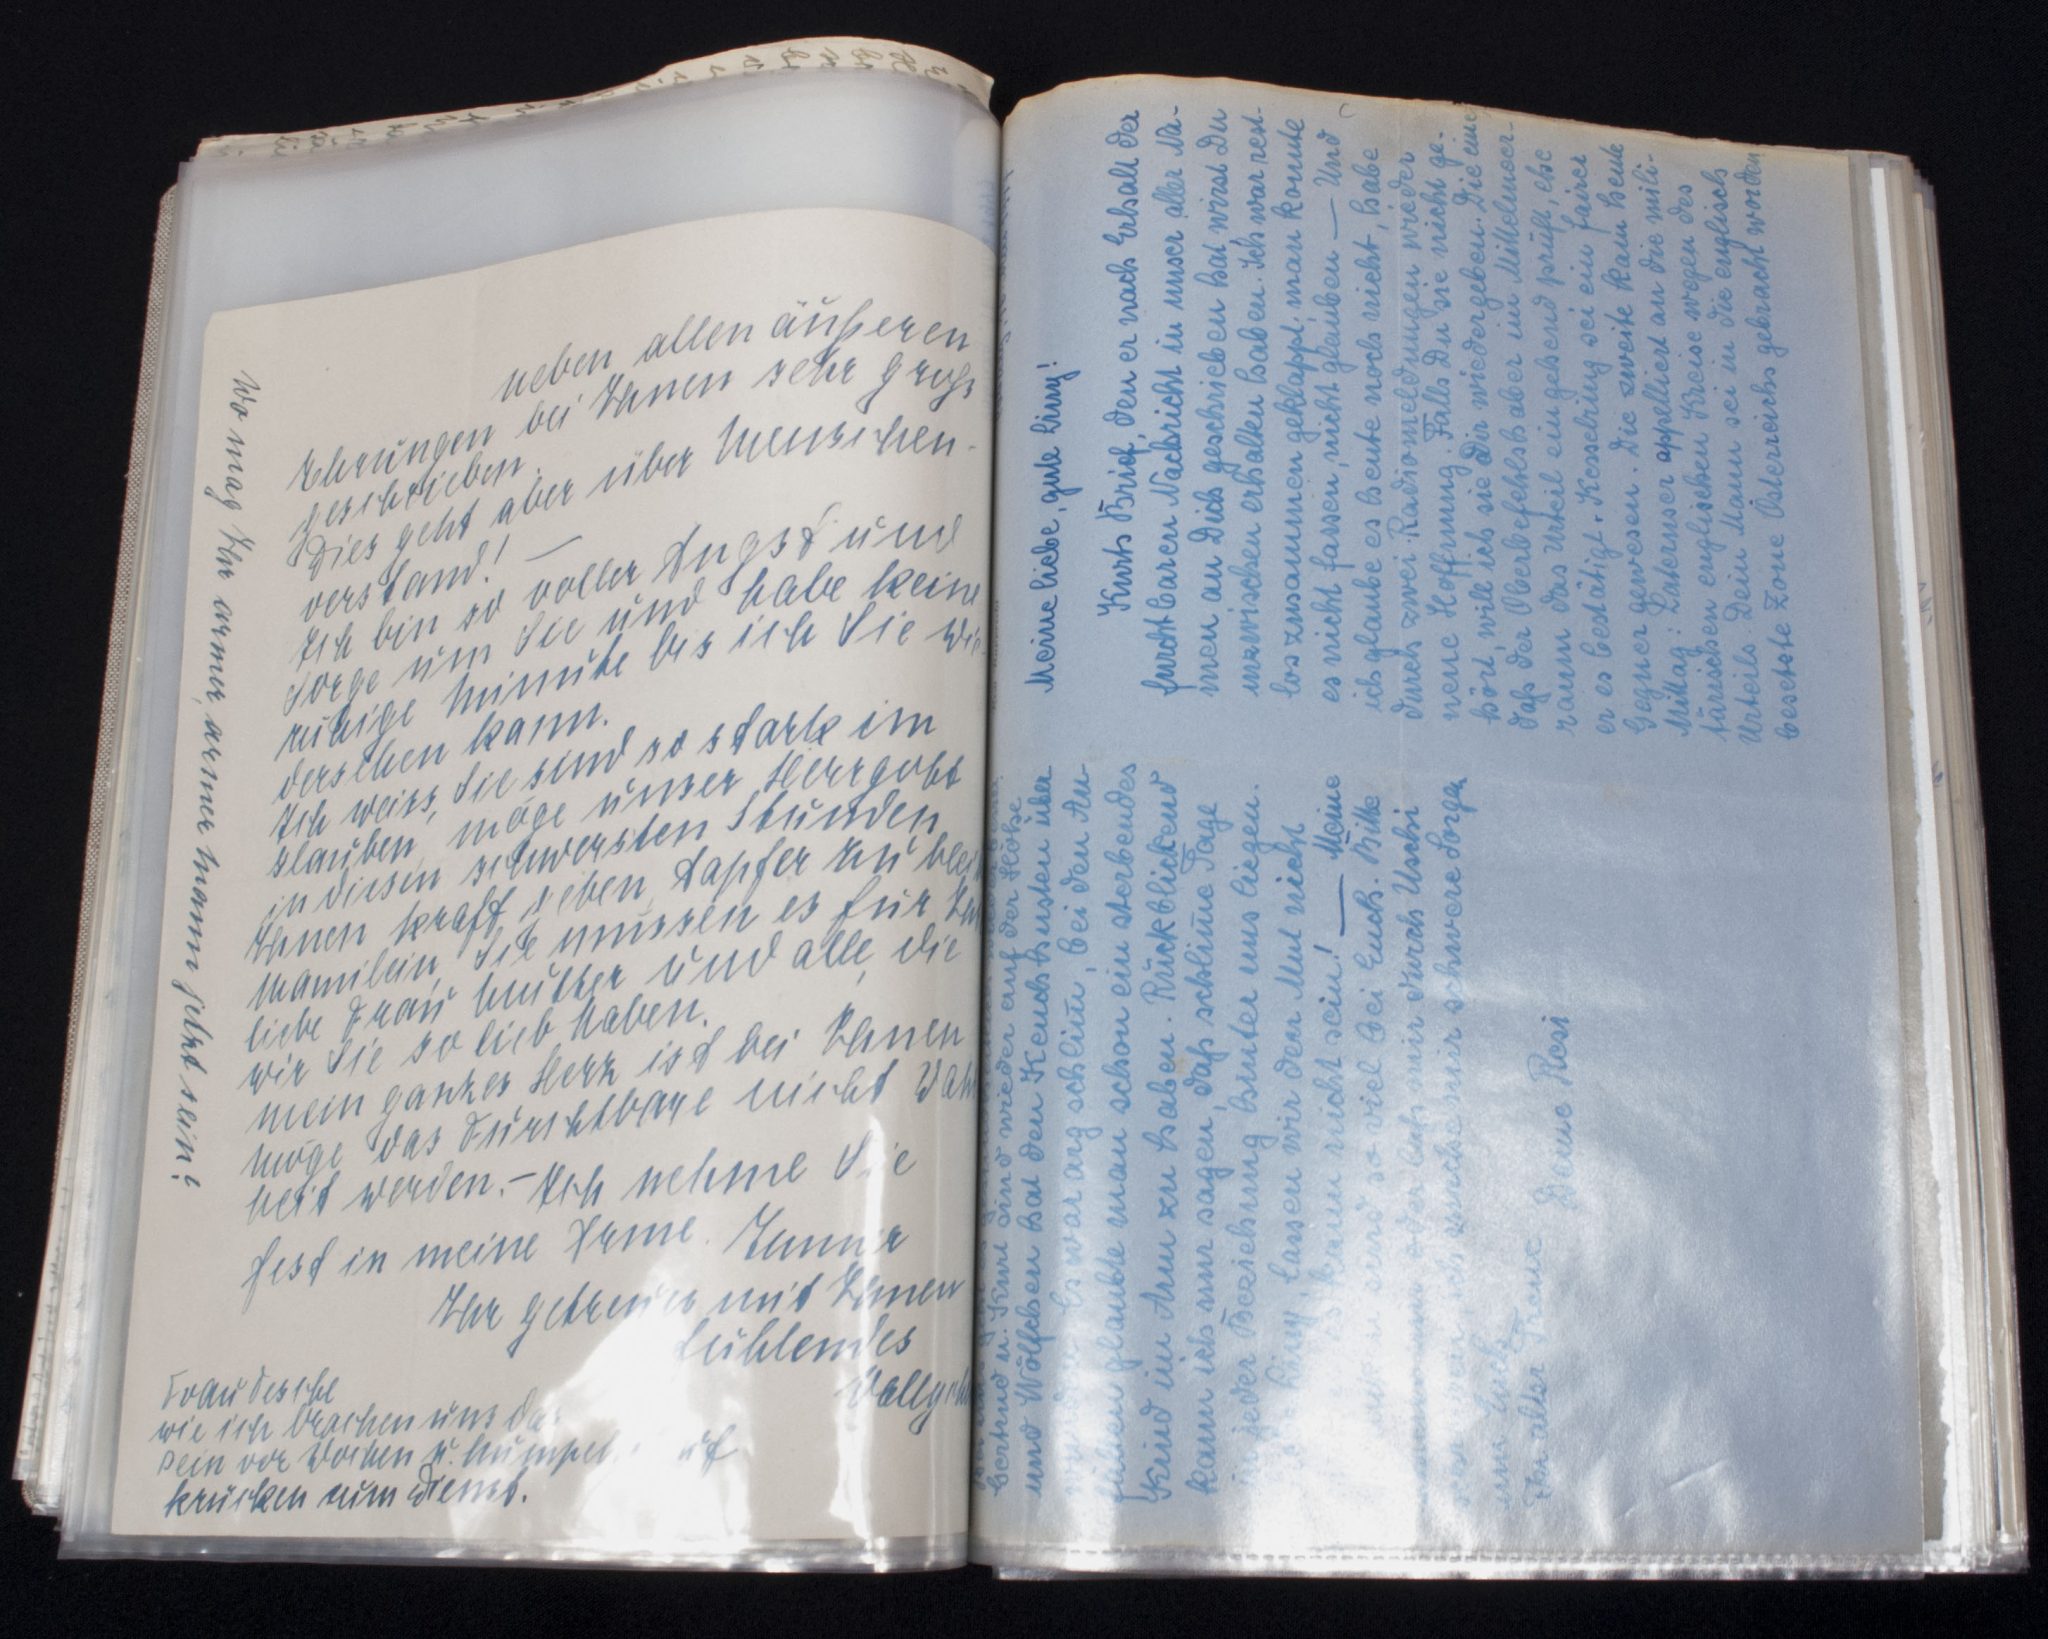 neben allen äußeren
Ehrungen bei Ihnen sehr groß
geschrieben.
Dies geht aber über Menschen-
verstand! —
Ich bin so voller Angst und
Sorge um Sie und habe keine
ruhige Minute bis ich Sie wie-
dersehen kann.
Ich weiss, Sie sind so stark im
Glauben, möge unser Herrgott
in diesen schwersten Stunden
Ihnen Kraft geben, tapfer zu blei
Mamilein, Sie müssen es für Ihr
liebe Frau Mutter und alle, die
wir Sie so lieb haben.
Mein ganzes Herz ist bei Ihnen
Möge das Furchtbare nicht Wahr
heit werden. – Ich nehme Sie
fest in meine Arme. Immer
Ihr getreues mit Ihnen
fühlendes
Wo mag Ihr armer, armer Mann jetzt sein?
wie ich brachen uns das
Bein vor Wochen u.
Krücken zum Dienst.
Meine liebe, gute Linny!
Kurts Brief, den er nach Erhalt der
furchtbaren Nachricht in unser aller Na-
men an Dich geschrieben hat wirst Du
inzwischen erhalten haben. Ich war rest-
los zusammengeklappt, man konnte
es nicht fassen, nicht glauben — Und
ich glaube es heute noch nicht, habe
durch zwei Radiomeldungen wieder
neue Hoffnung. Falls Du sie nicht ge-
hört, will ich sie Dir wiedergeben. Die eine,
daß der Oberbefehlshaber im Mittelmeer-
raum das Urteil eingehend prüft, ehe
er es bestätigt. Kesselring sei ein fairer
Gegner gewesen. Die zweite kam heute
Mittag: Laternser appelliert an die mili-
tärischen englischen Kreise wegen des
Urteils. Dein Mann sei in die englisch
besetzte Zone Österreichs gebracht worden
Gertrud u. Kurt sind wieder auf der Höhe
und Wölfchen hat den Keuchhusten über
wunden. Es war arg schlim̄, bei den An-
fällen glaubte man schon ein sterbendes
Kind im Arm zu haben. Rückblickend
kann ich nur sagen, daß schlim̄e Tage
in jeder Beziehung hinter uns liegen.
Linny, lassen wir den Mut nicht
Es kann nicht sein! — Meine
sind so viel bei Euch. Bitte
oder laß mir durch Uschi
ich mache mir schwere Sorge
um Euch.
In alter Treue
Deine Rosi